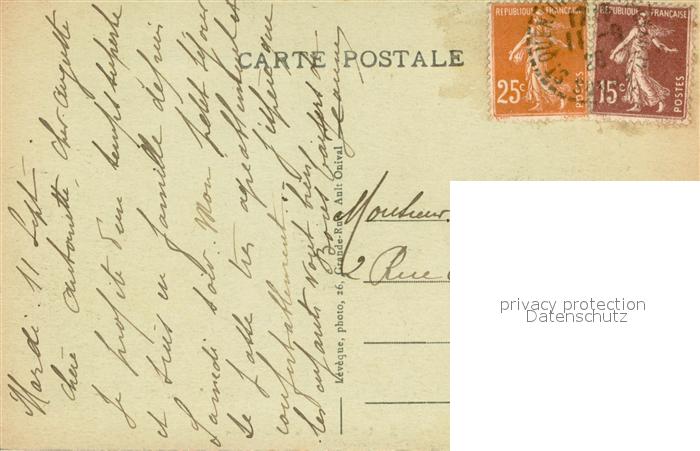 CARTE POSTALE
REPUBLIQUE FRANÇAISE
25c
POSTES
REPUBLIQUE FRANÇAISE
15c
POSTES
Mardi 11 Sept
Chère Antoinette, cher Auguste
Je profite d'un temps superbe
et suis en famille depuis
Samedi soir. Mon petit séjour
se passe très agréablement et
confortablement. J'espère que
les enfants vont bien
Bons baisers
Jeanne
Lévêque, photo, 26, Grande-Rue, Ault Onival
Monsieur
2 Rue
privacy protection
Datenschutz